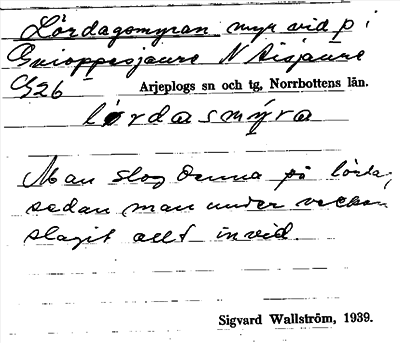 Lördagsmyran myr vid p i
Gui oppesjaure N Aisjaure
G26 Arjeplogs sn och tg, Norrbottens län.
lördasmýra
Man slog denna på lörda,
sedan man under veckan
slagit allt invid.
Sigvard Wallström, 1939.